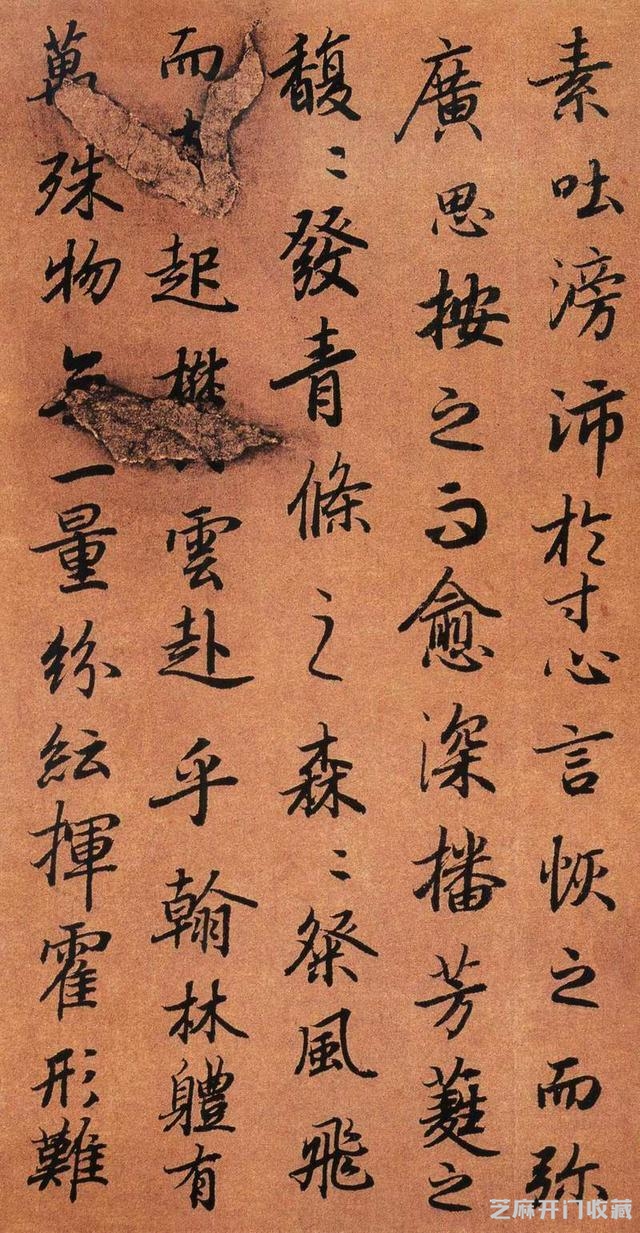 素吐滂沛於寸心言恢之而弥
廣思按之而愈深播芳蕤之
馥〻發青條之森〻粲風飛
而起雲赴乎翰林體有
萬殊物一量紛紜揮霍形難
芝麻开门收藏